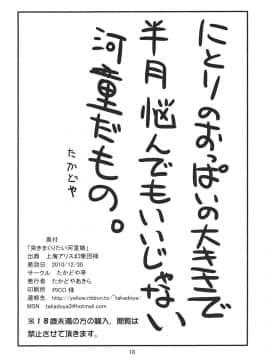 にとりのおっぱいの大きさで
半月悩んでもいいじゃない
河童だもの。
たかどや
奥付
「突きまくりたい河童娘」
出典 上海アリス幻樂団様
発効日 2010/12/30
サークル たかどや亭
発行者 たかどやあきら
印刷所 PICO 様
連絡先 http://yellow.ribbon.to/~takadoya/
MSN takadoya2@hotmail.com
※18歳未満の方の購入、閲覧は
禁止させて頂きます。
16